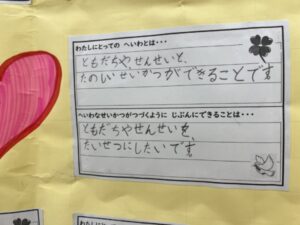 わたしにとっての へいわとは・・・
ともだちや、せんせいと、
たのしいせいかつができることです
へいわなせいかつがつづくように じぶんにできることは・・・
ともだちやせんせいを、
たいせつにしたいです
わたしにとっての